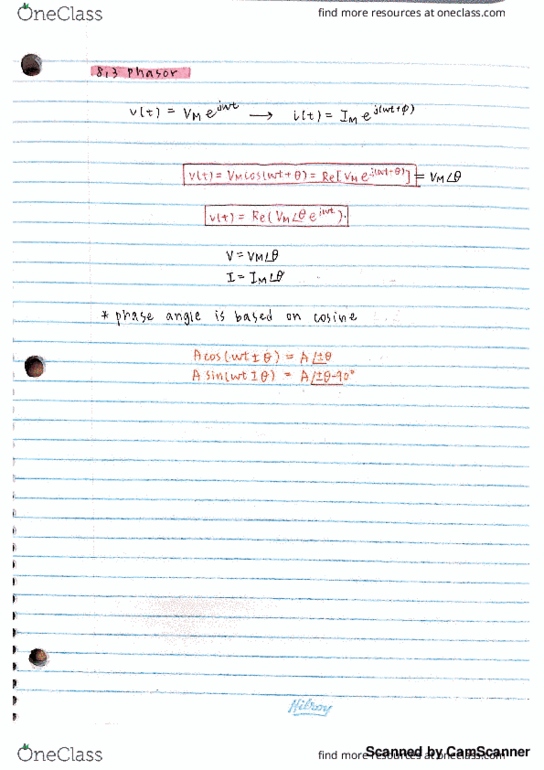 OneClass
find more resources at oneclass.com
8.3 Phasor
v(t) = VM e^jwt → i(t) = IM e^j(wt+φ)
v(t) = VM cos(wt + θ) = Re[VM e^j(wt+θ)] = VM∠θ
v(t) = Re(VM∠θ e^jwt).
V = VM∠θ
I = IM∠θ
* phase angle is based on cosine
A cos(wt ± θ) = A∠±θ
A sin(wt ± θ) = A∠±θ-90°
Hilroy
OneClass
find more resources at oneclass.com
Scanned by CamScanner